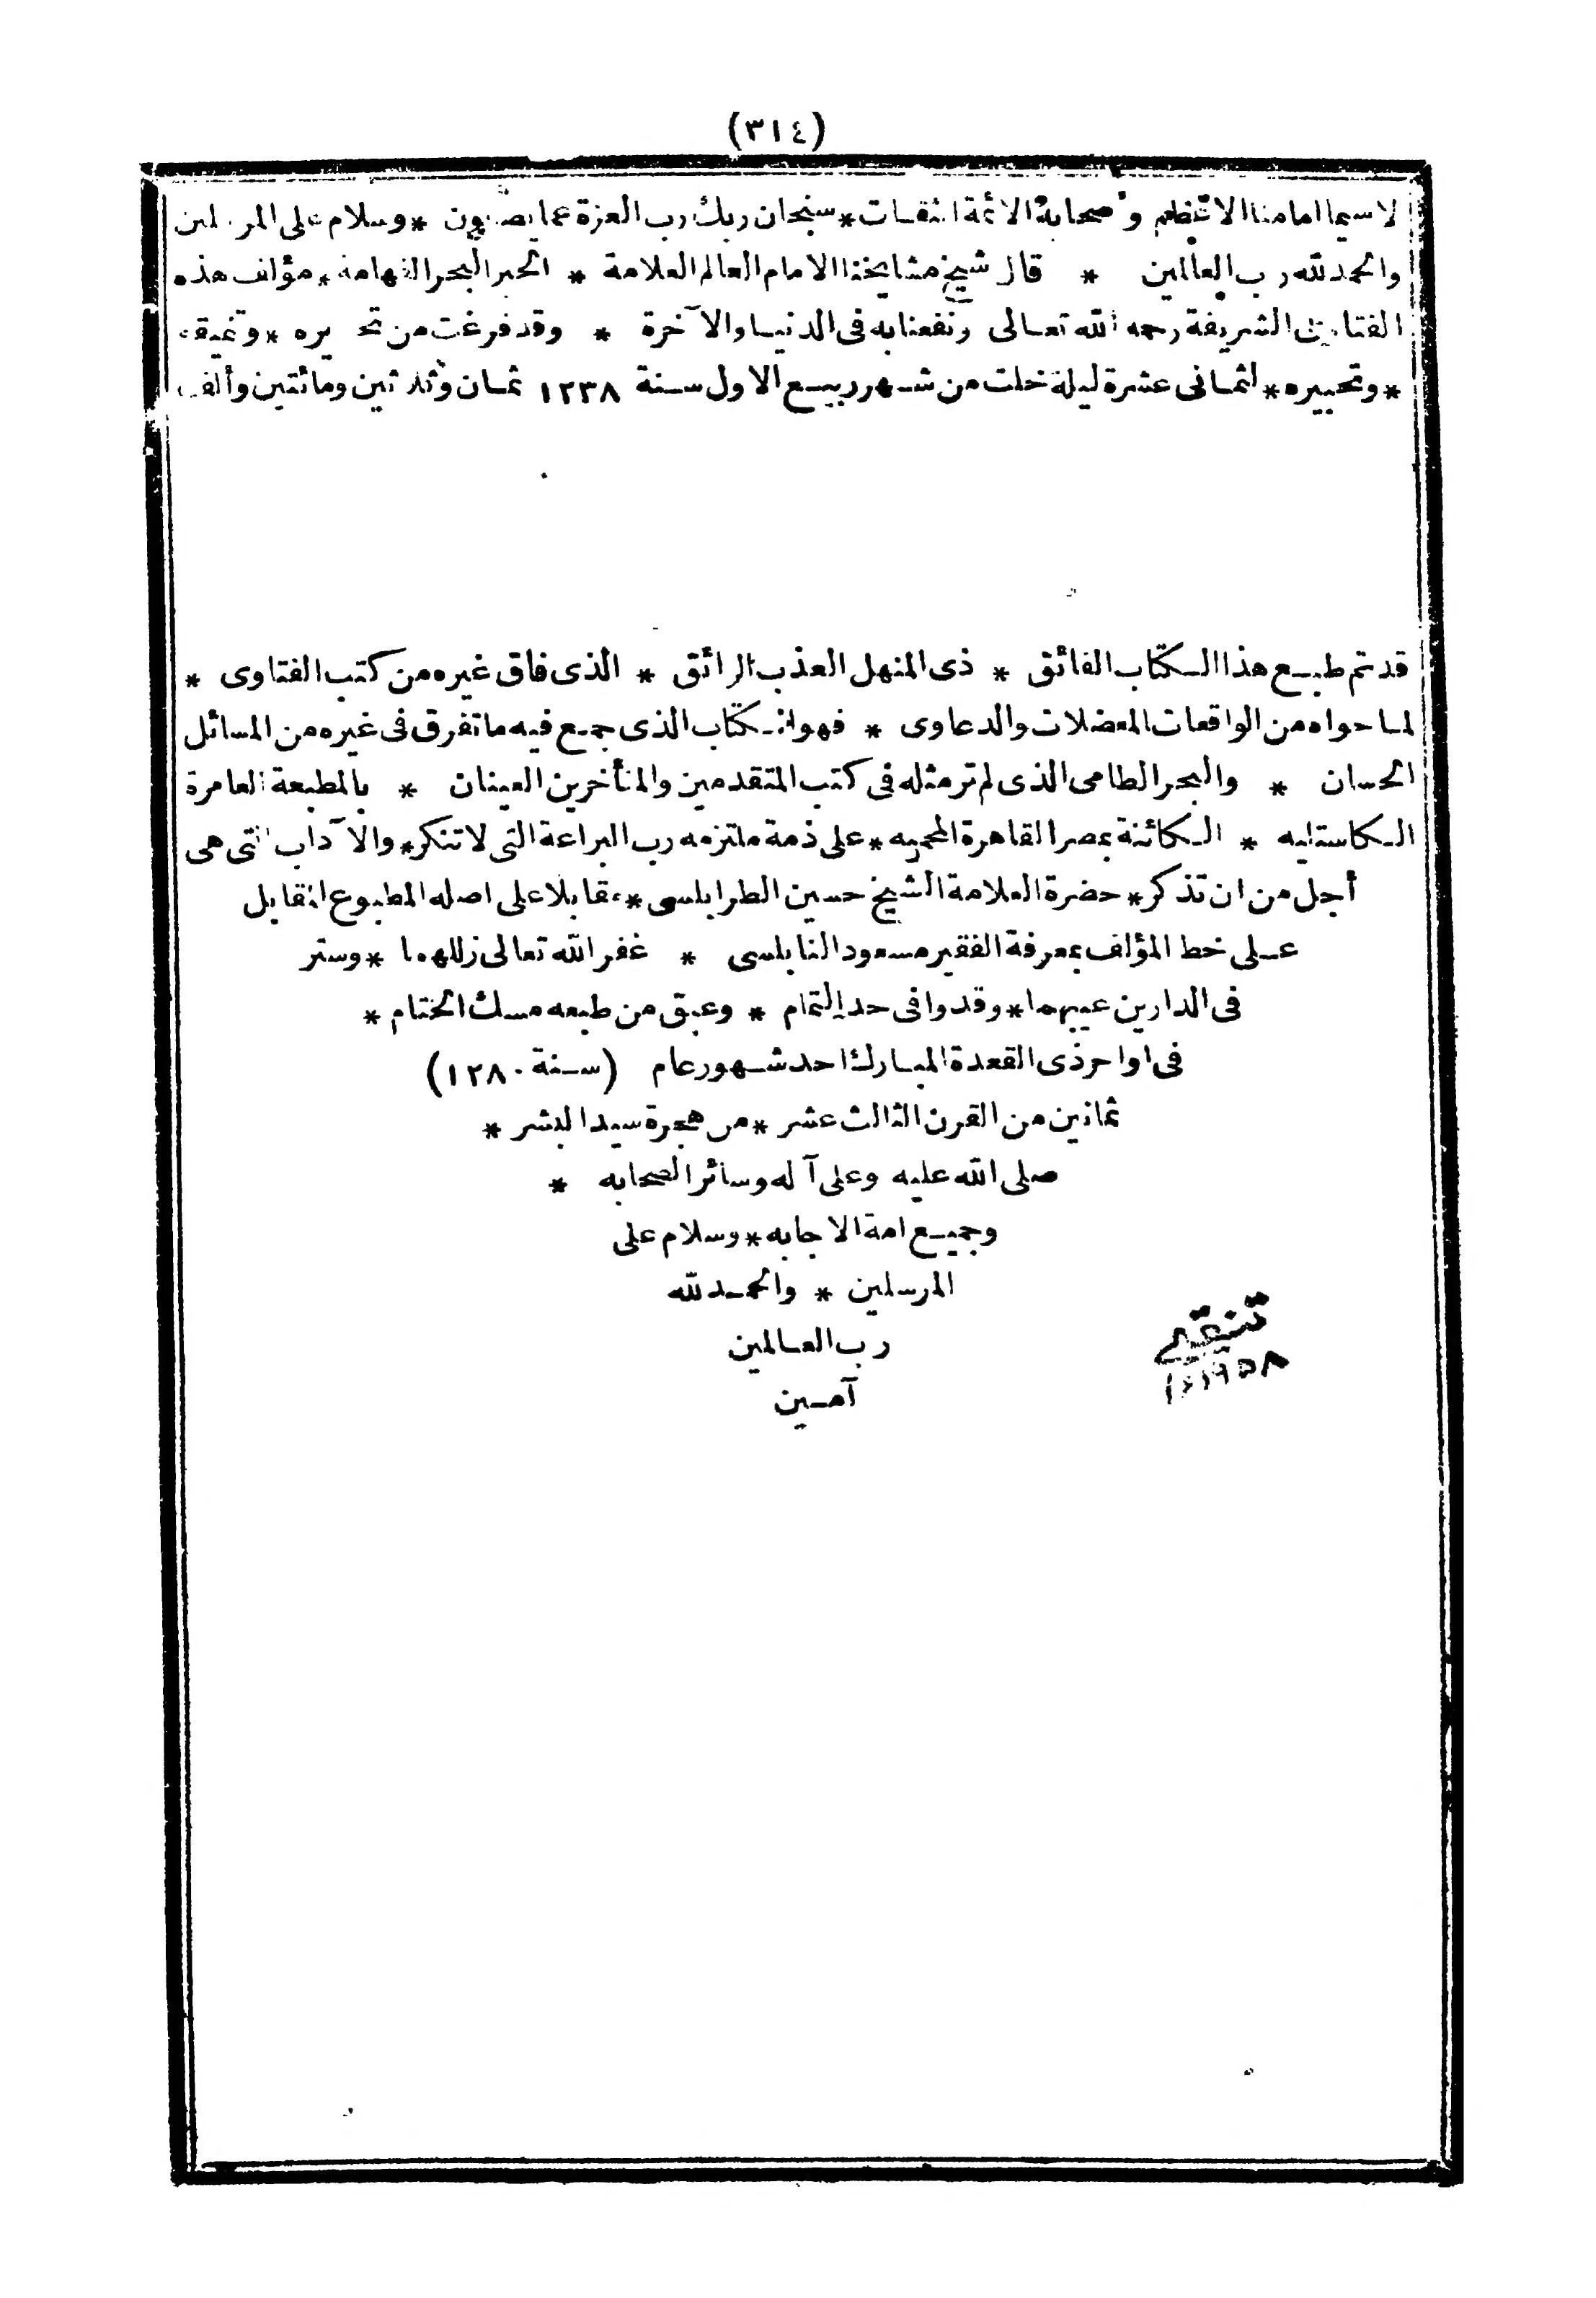 (٣١٤)
لا سيما امامنا الاعظم وصحابة الائمة الثقات * سبحان ربك رب العزة عما يصفون * وسلام على المرسلين
والحمد لله رب العالمين * قال شيخ مشايخنا الامام العالم العلامة * الحبر البحر الفهامة * مؤلف هذه
الفتاوى الشريفة رحمه الله تعالى ونفعنا به فى الدنيا والآخرة * وقد فرغت من تحريره * وتنميقه
* وتحبيره * لثمانى عشرة ليلة خلت من شهر ربيع الاول سنة ١٢٣٨ ثمان وثلاثين ومائتين وألف
قد تم طبع هذا الكتاب الفائق * ذى المنهل العذب الرائق * الذى فاق غيره من كتب الفتاوى *
لما حواه من الواقعات المعضلات والدعاوى * فهو الكتاب الذى جمع فيه ما تفرق فى غيره من المسائل
الحسان * والبحر الطامى الذى لم تر مثله فى كتب المتقدمين والمتأخرين العينان * بالمطبعة العامرة
الكاستليه * الكائنة بمصر القاهرة المحميه * على ذمة ملتزمه رب البراعة التى لا تنكر * والآداب التى هى
أجل من ان تذكر * حضرة العلامة الشيخ حسين الطرابلسى * مقابلا على اصله المطبوع المقابل
على خط المؤلف بمعرفة الفقير مسعود النابلسى * غفر الله تعالى زللهما * وستر
فى الدارين عيبهما * وقد وافى حد التمام * وعبق من طبعه مسك الختام *
فى اواخر ذى القعدة المبارك احد شهور عام (سنة ١٢٨٠)
ثمانين من القرن الثالث عشر * من هجرة سيد البشر *
صلى الله عليه وعلى آله وسائر الصحابه *
وجميع امة الاجابه * وسلام على
المرسلين * والحمد لله
رب العالمين
آمين